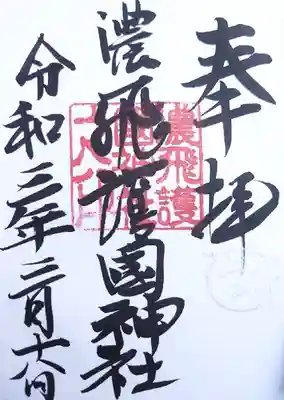 奉拝
濃飛護國神社
令和三年三月十六日
濃飛護